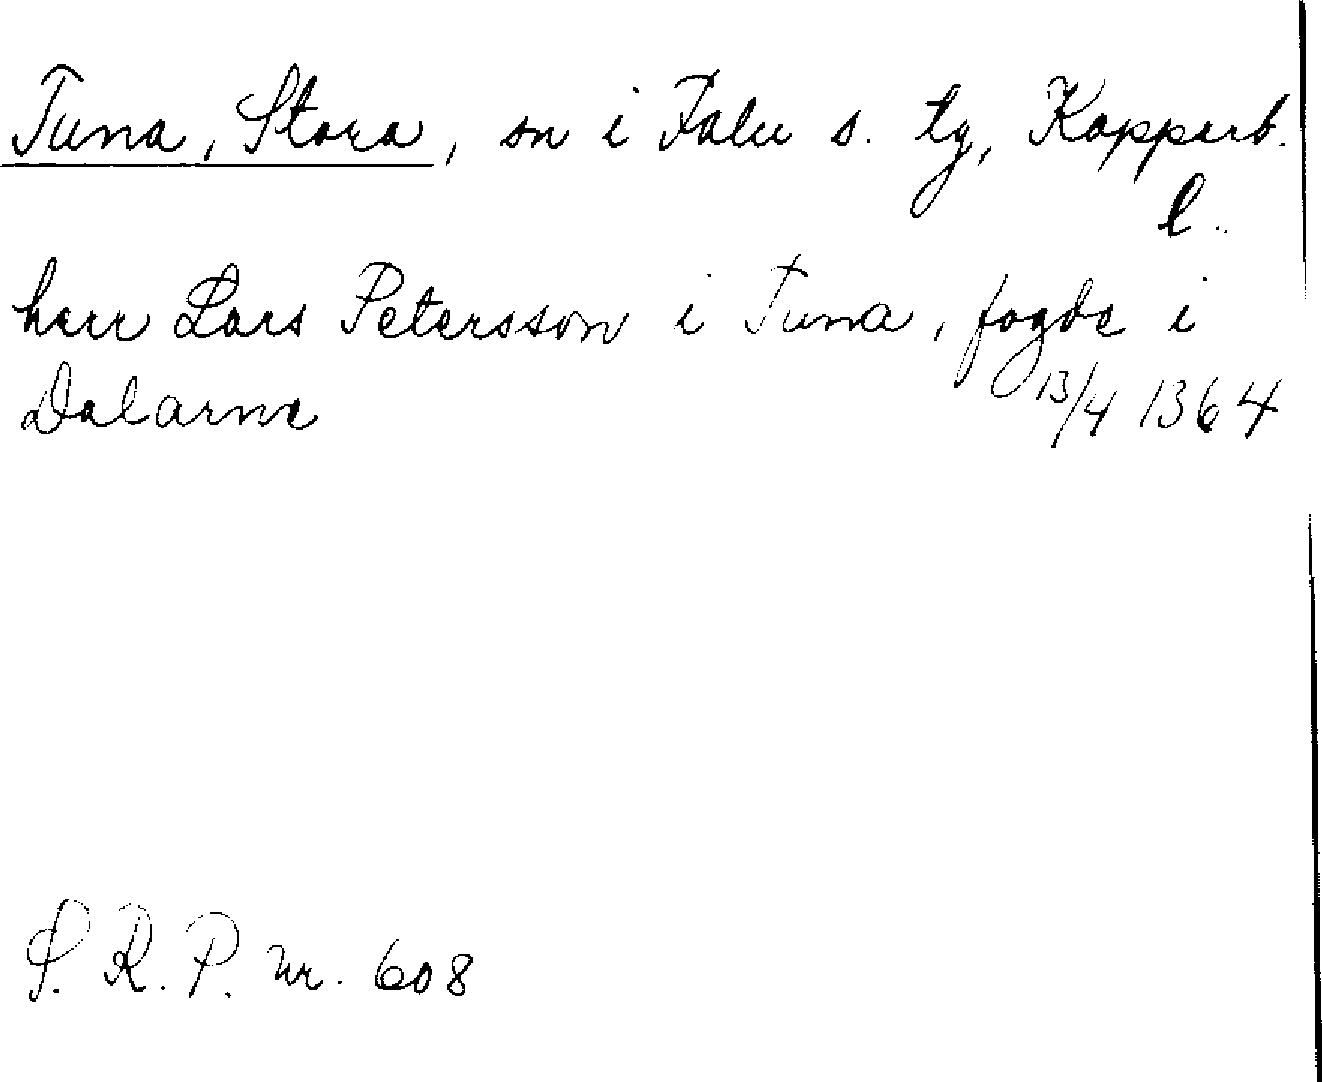 Tuna, Stora, sn i Falu s. tg, Kopparb.
l.
herr Lars Petersson i Tuna, fogde i
Dalarne 13/4 1364
S. R. P. nr. 608